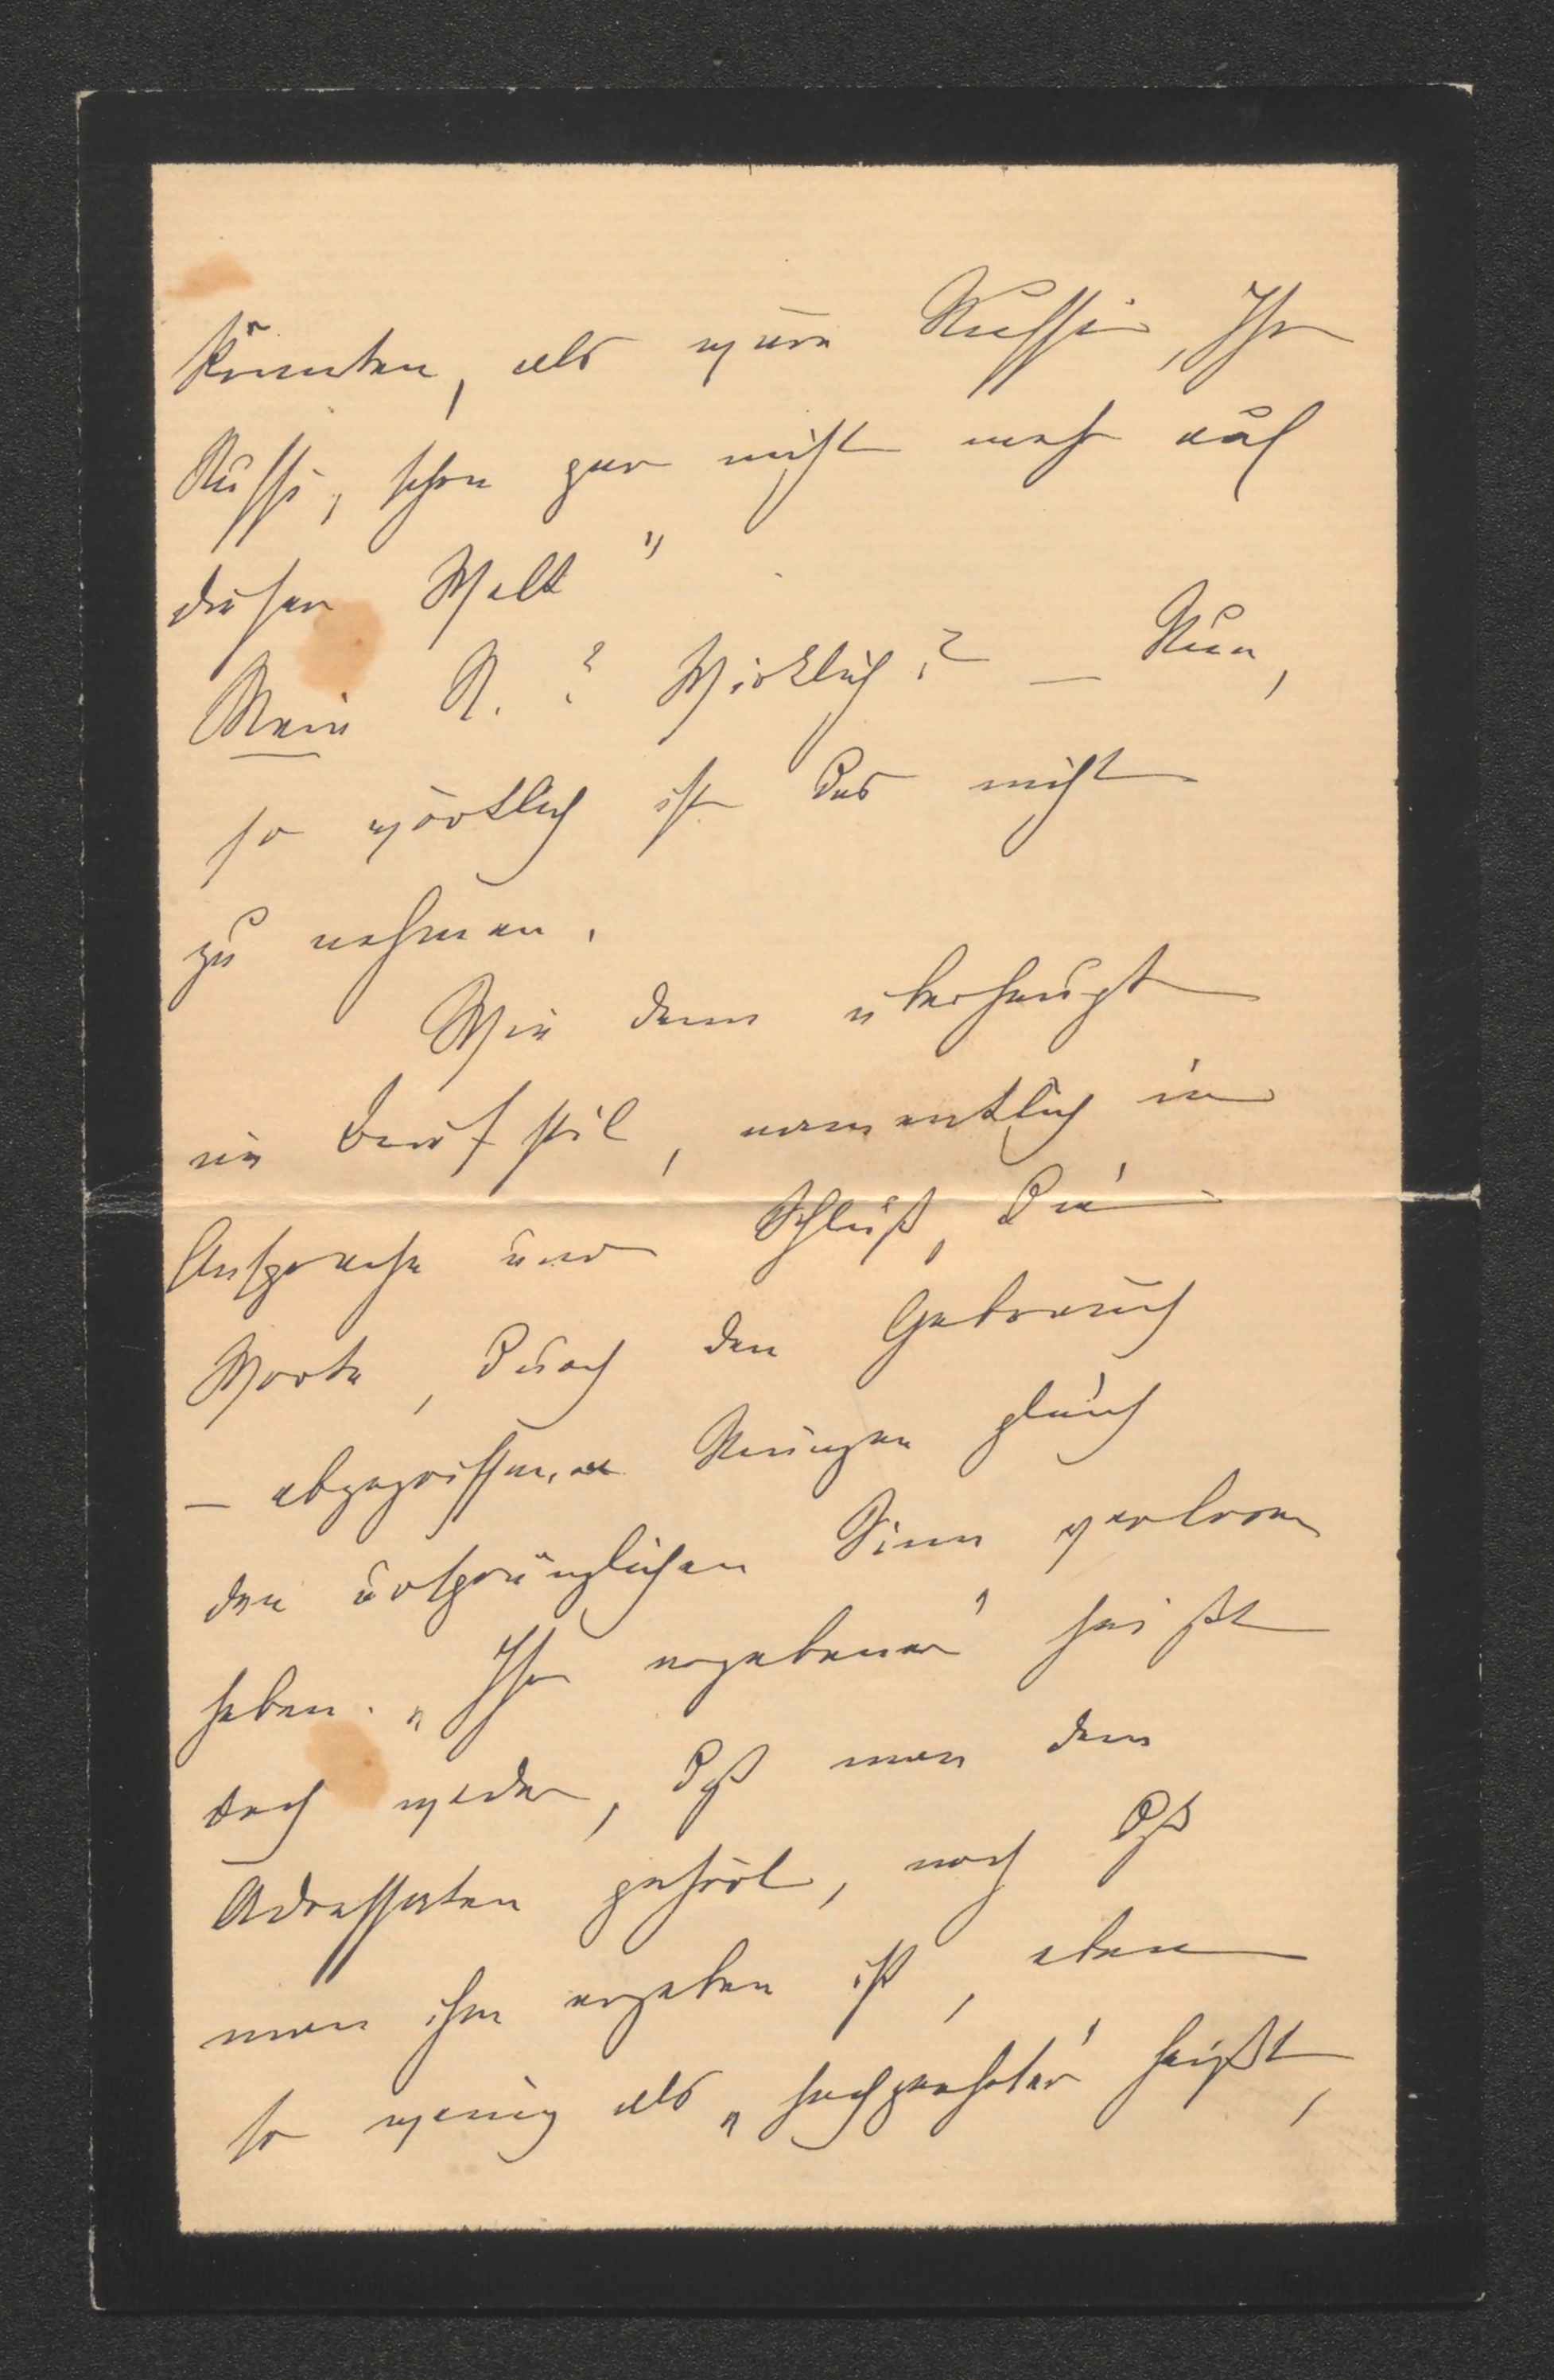 könnten, als wäre Nuffi, Ihr
Nuffi, schon gar nicht mehr auf
dieser Welt"
Mein N.? Wirklich? — Nun,
so wörtlich ist das nicht
zu nehmen.
Wie denn überhaupt
im Briefstil, namentlich in
Ansprache und Schluß, die
Worte, durch den Gebrauch
— abgegriffenen Münzen gleich
den ursprünglichen Sinn verloren
haben. „Ihr ergebener" heißt
doch weder, daß man dem
Adressaten gehört, noch daß
man ihm ergeben ist, eben
so wenig als „hochgeehrter" heißt,